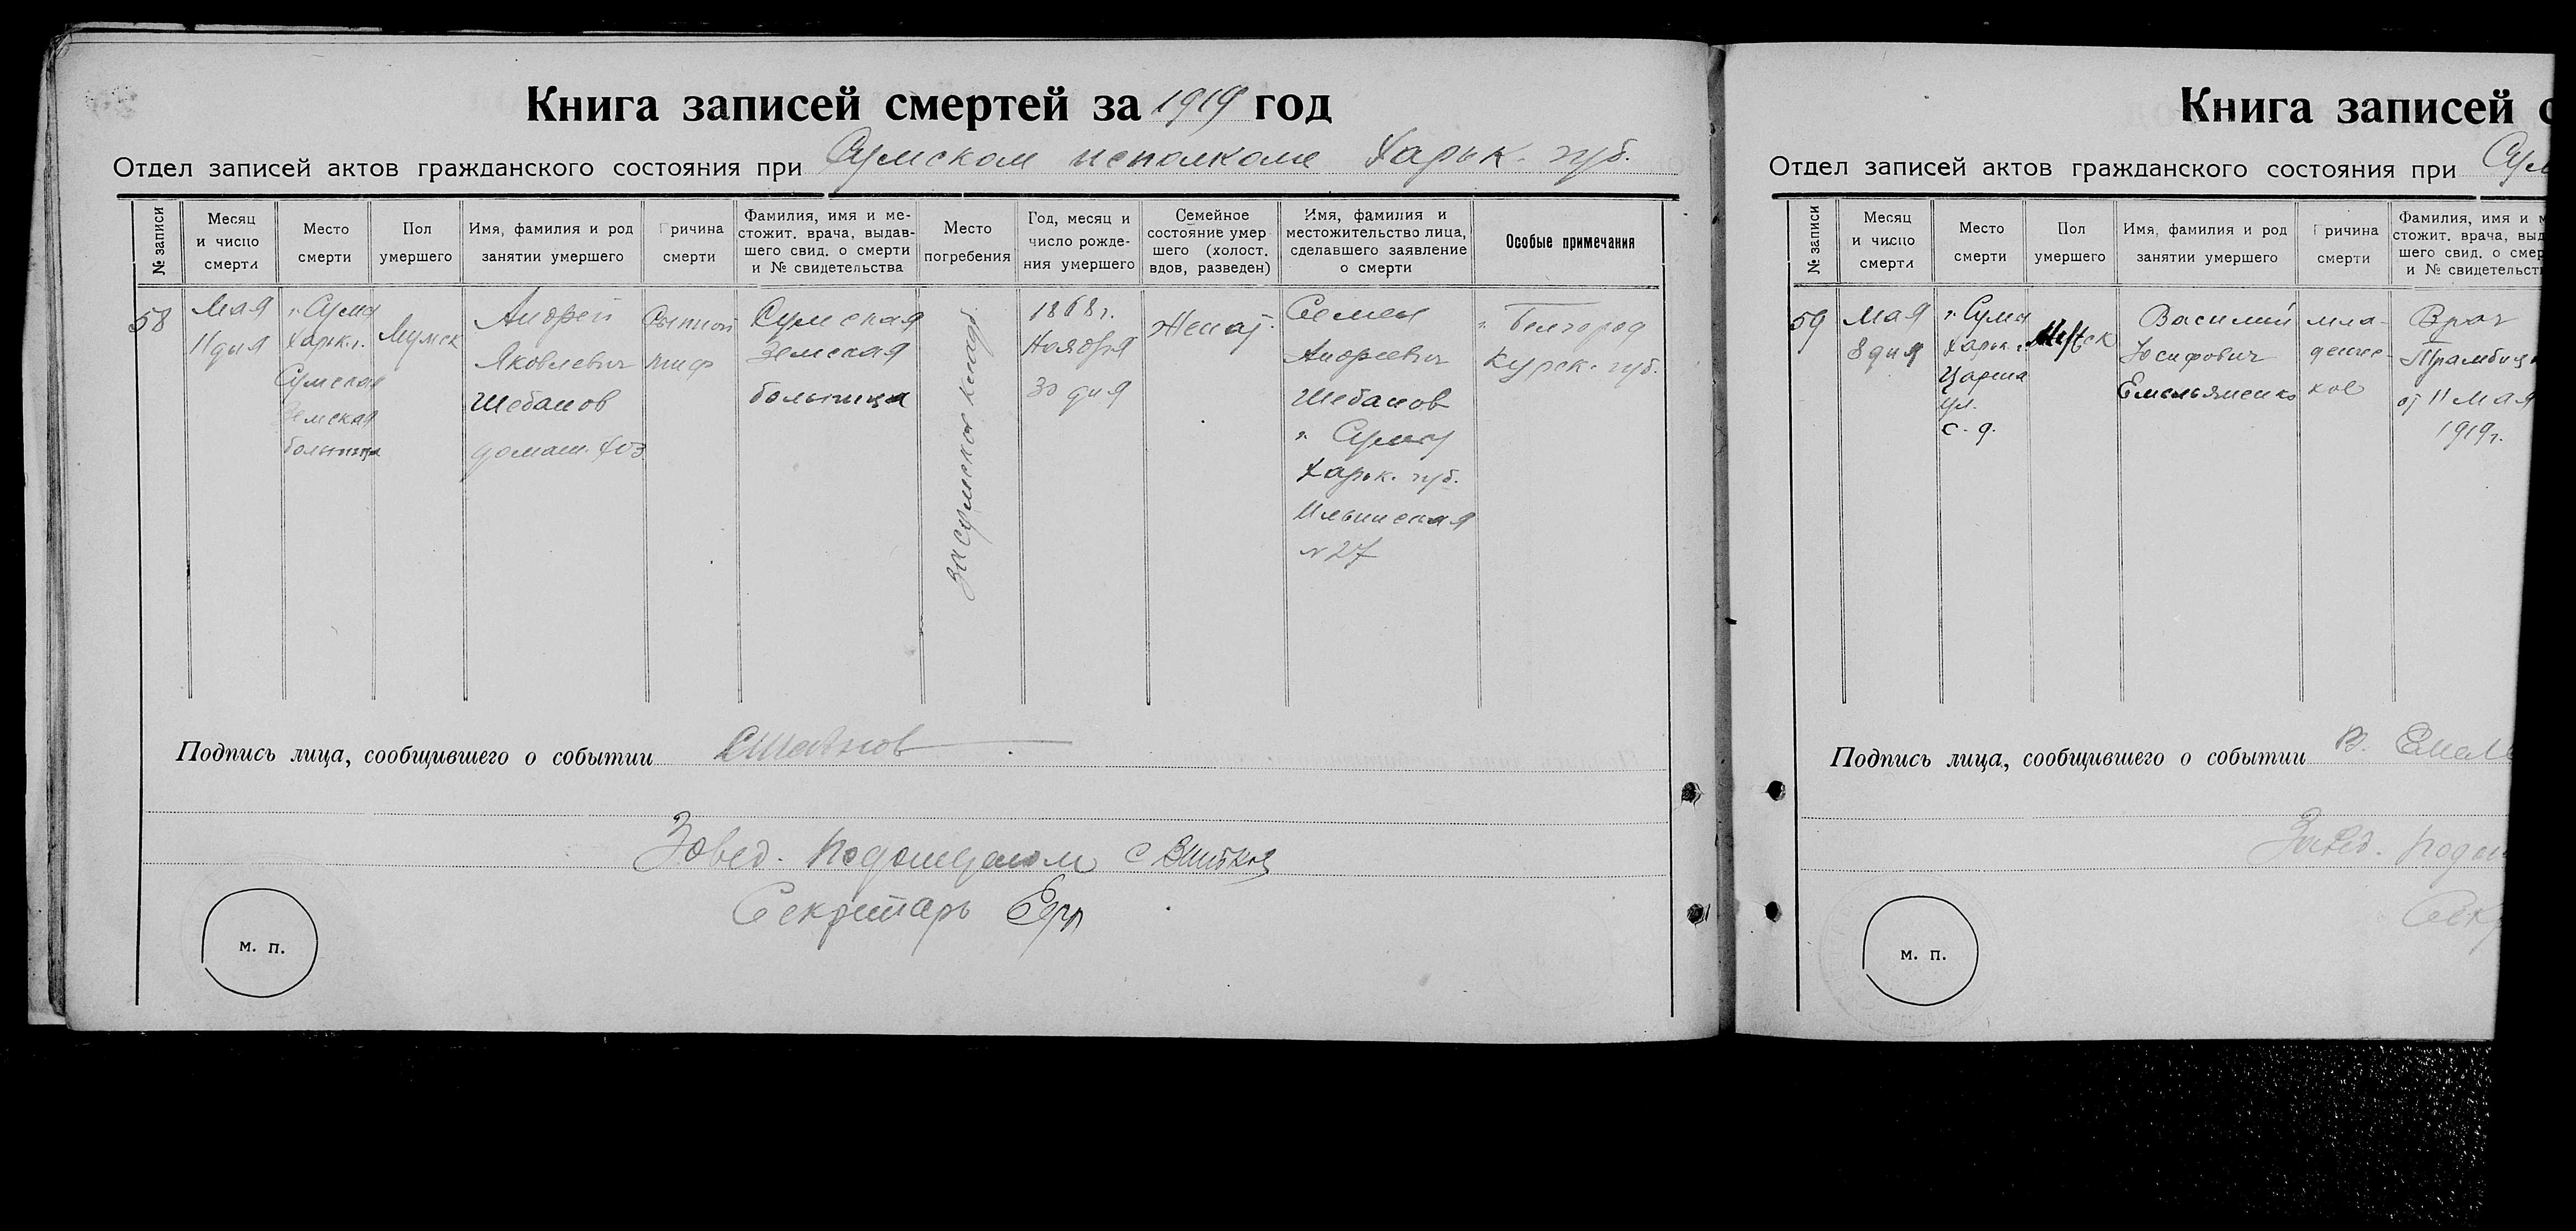 Книга записей смертей за 1919 год
Отдел записей актов гражданского состояния при Сумском исполкоме Харьк. губ.
№ записи
Месяц
и число
смерти
Место
смерти
Пол
умершего
Имя, фамилия и род
занятии умершего
Причина
смерти
Фамилия, имя и ме-
стожит. врача, выдав-
шего свид. о смерти
и № свидетельства
Место
погребения
Год, месяц и
число рожде-
ния умершего
Семейное
состояние умер
шего (холост.
вдов, разведен)
Имя, фамилия и
местожительство лица,
сделавшего заявление
о смерти
Особые примечания
58
Мая
11 дня
г. Сумы
Харьк г.
Сумская
Земская
больница
Мужск
Андрей
Яковлевич
Шебанов
домаш. хоз
Сыпной
тиф
Сумская
Земская
больница
Засумское кладб.
1868 г.
Ноября
30 дня
Женат.
Семен
Андреевич
Шебанов
г. Сумы
Харьк. губ.
Ильинская
№ 27
г. Белгород
Курск. губ.
Подпись лица, сообщившего о событии
Завед. Подотделом С
Секретарь
м. п.
Книга записей с
Отдел записей актов гражданского состояния при Сум
№ записи
Месяц
и число
смерти
Место
смерти
Пол
умершего
Имя, фамилия и род
занятии умершего
Причина
смерти
Фамилия, имя и м
стожит. врача, выд
шего свид. о смер
и № свидетельст
59
Мая
8 дня
г. Сумы
Харьк. г.
ул.
с. д.
Мужск
Василий
Юсифович
Емельяненко
мла-
денче-
кое
Врач
от 11 Мая
1919 г.
Подпись лица, сообщившего о событии В. Емель
Завед. Подот
Секр
м. п.